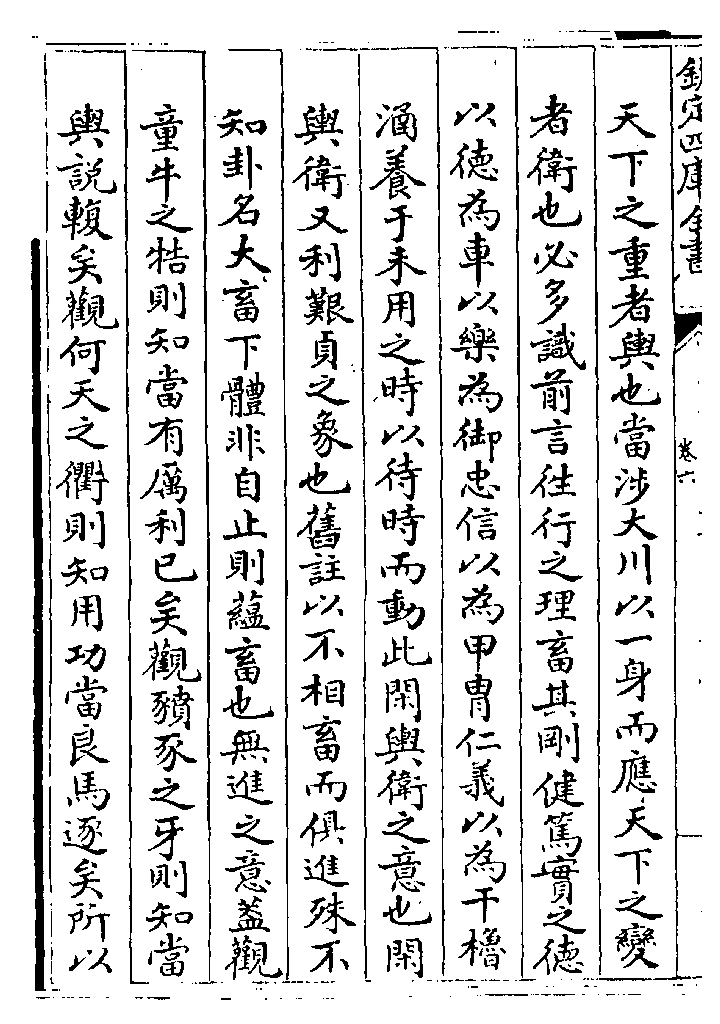 欽定四庫全書
卷六
天下之重者輿也當涉大川以一身而應天下之變
者衛也必多識前言往行之理畜其剛健篤實之德
以德為車以樂為御忠信以為甲胄仁義以為干櫓
涵養于未用之時以待時而動此閑輿衛之意也閑
輿衛又利艱貞之象也舊註以不相畜而俱進殊不
知卦名大畜下體非自止則蘊畜也無進之意蓋觀
童牛之牿則知當有厲利已矣觀豶豕之牙則知當
輿説輹矣觀何天之衢則知用功當良馬逐矣所以